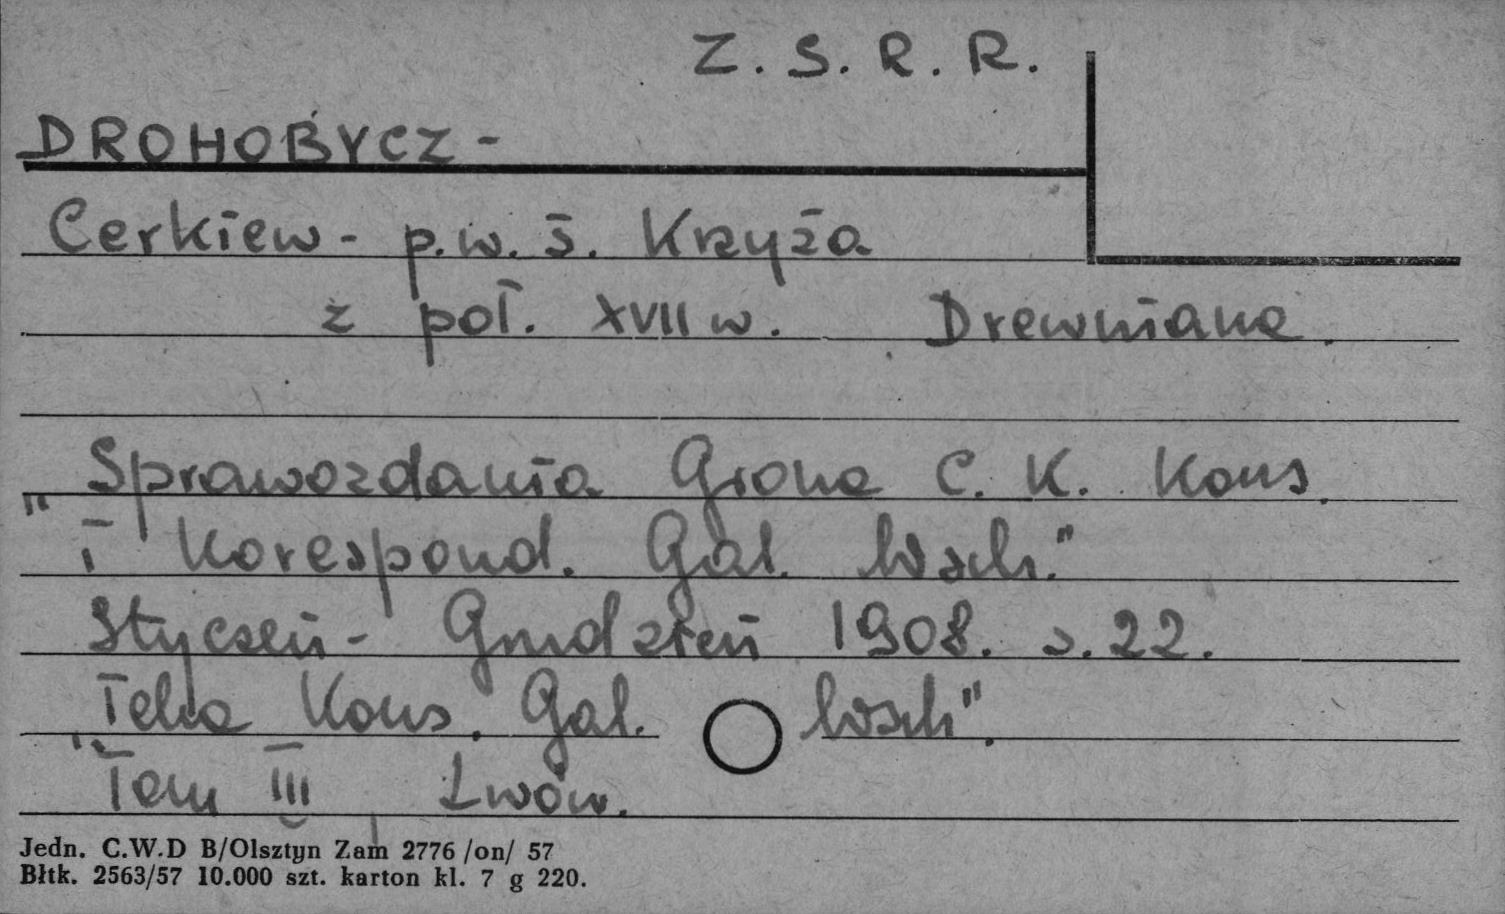 Z. S. R. R.
DROHOBYCZ -
Cerkiew - p.w. ś. Krzyża
z poł. XVII w. Drewniana.
„Sprawozdania Grona C. K. Kons.
i Korespond. Gal. Wsch."
Styczeń - Grudzień 1908. s. 22.
„Teka Kons. Gal. Wsch".
Tom III Lwów.
Jedn. C.W.D B/Olsztyn Zam 2776 /on/ 57
Błtk. 2563/57 10.000 szt. karton kl. 7 g 220.